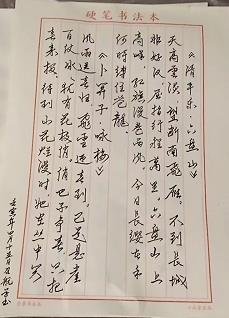 硬笔书法本
《清平乐·六盘山》
天高云淡，望断南飞雁。不到长城
非好汉，屈指行程二万。六盘山上
高峰，红旗漫卷西风。今日长缨在手，
何时缚住苍龙？
《卜算子·咏梅》
风雨送春归，飞雪迎春到。已是悬崖
百丈冰，犹有花枝俏。俏也不争春，只把
春来报。待到山花烂漫时，她在丛中笑